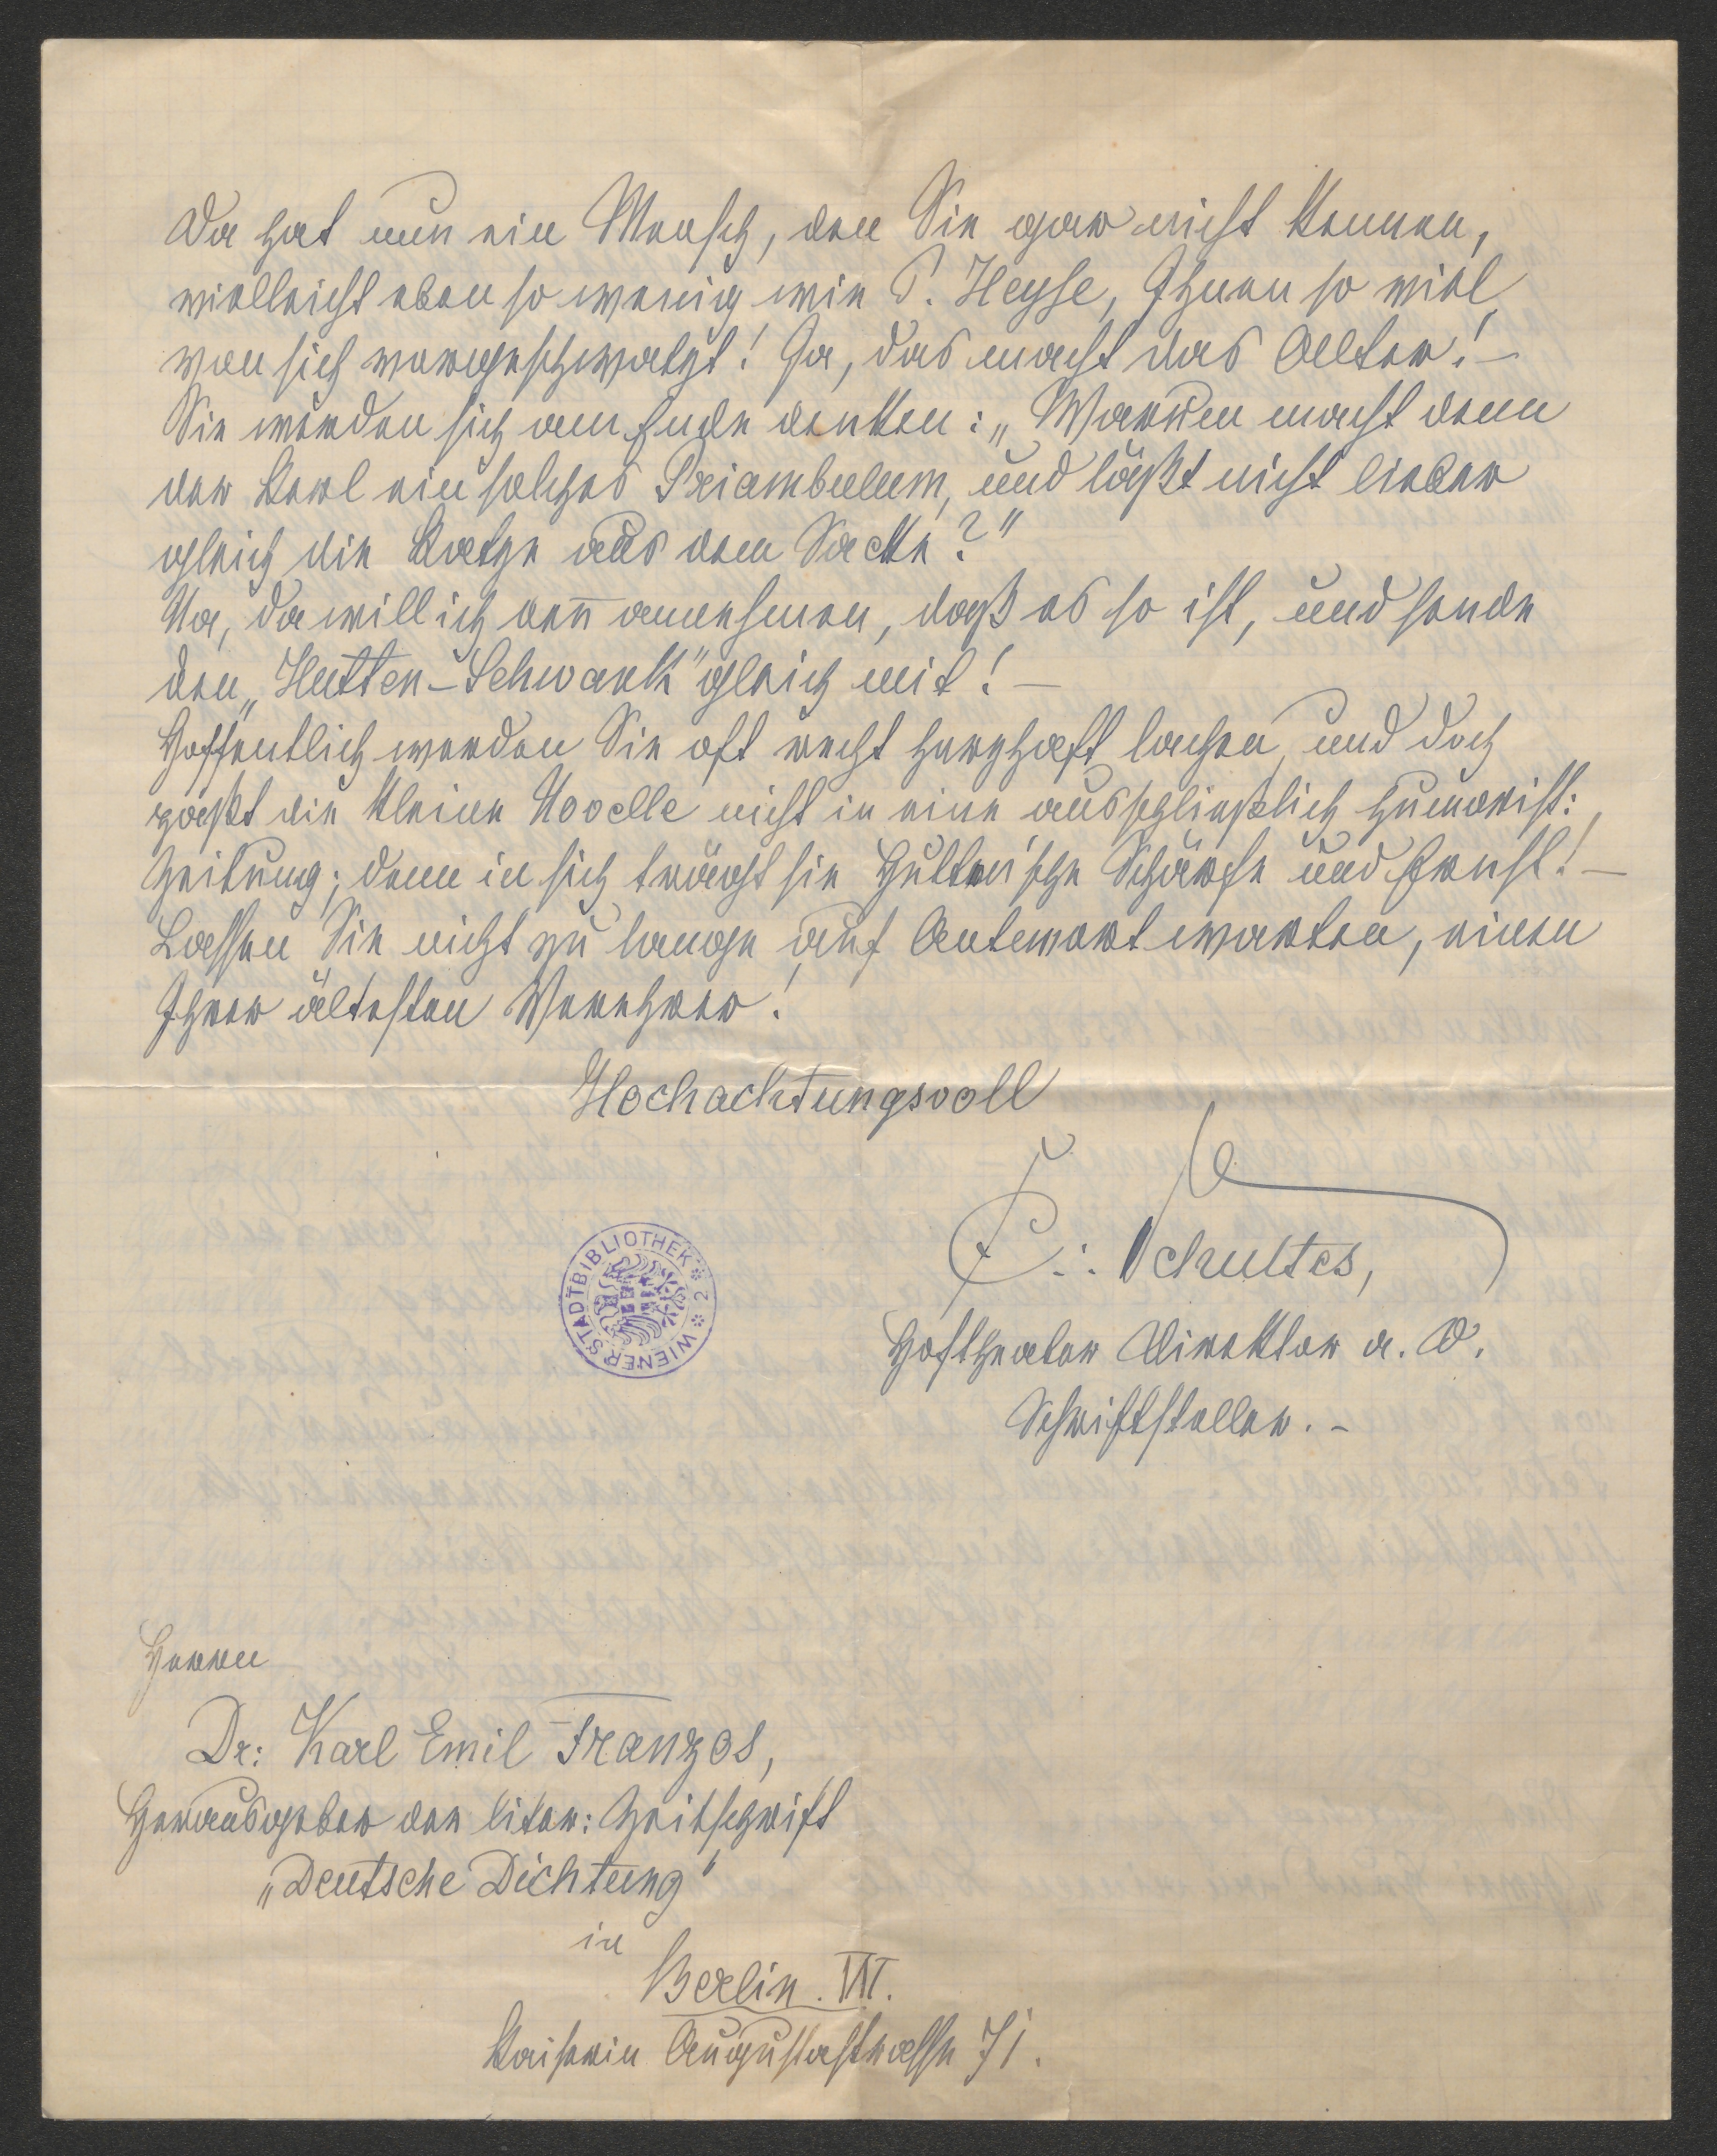 Da hat nun ein Mensch, den Sie gar nicht kennen,
vielleicht eben so wenig wie P. Heyse, Ihnen so viel
von sich vorgeschwatzt! Ja, das macht das Alter! –
Sie werden sich am Ende denken: „Warum macht denn
der Kerl ein solches Priambulum, und läßt nicht lieber
gleich die Katze aus dem Sacke?"
Na, da will ich deñ annehmen, daß es so ist, und sende
den „Hutten-Schwank" gleich mit! –
Hoffentlich werden Sie oft recht herzhaft lachen, und doch
paßt die kleine Novelle nicht in eine ausschließlich humorist:
Zeitung; denn in sich trägt sie Hutten'sche Schärfe und Ernst! –
Lassen Sie nicht zu lange auf Antwort warten, einen
Ihrer ältesten Verehrer!
Hochachtungsvoll
C.: Schultes,
Hoftheater Direktor a. D.
Schriftsteller. –
WIENER STADTBIBLIOTHEK * 2 *
Herrn
Dr: Karl Emil Franzos,
Herausgeber der liter: Zeitschrift
„Deutsche Dichtung"
in
Berlin. W.
Kaiserin Augustastrasse 71.